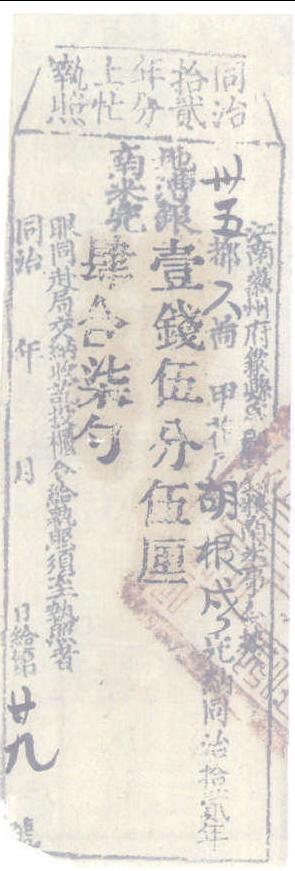 同治
拾貳
年分
上忙
執照
江南徽州府歙縣
卅五都 啚 甲花戶胡根成 完納同治拾貳年
地漕銀壹錢伍分伍厘
南米完肆合柒勺
眼同赴局交納收訖投櫃合給執照須至執照者
同治 年 月 日給第廿九號